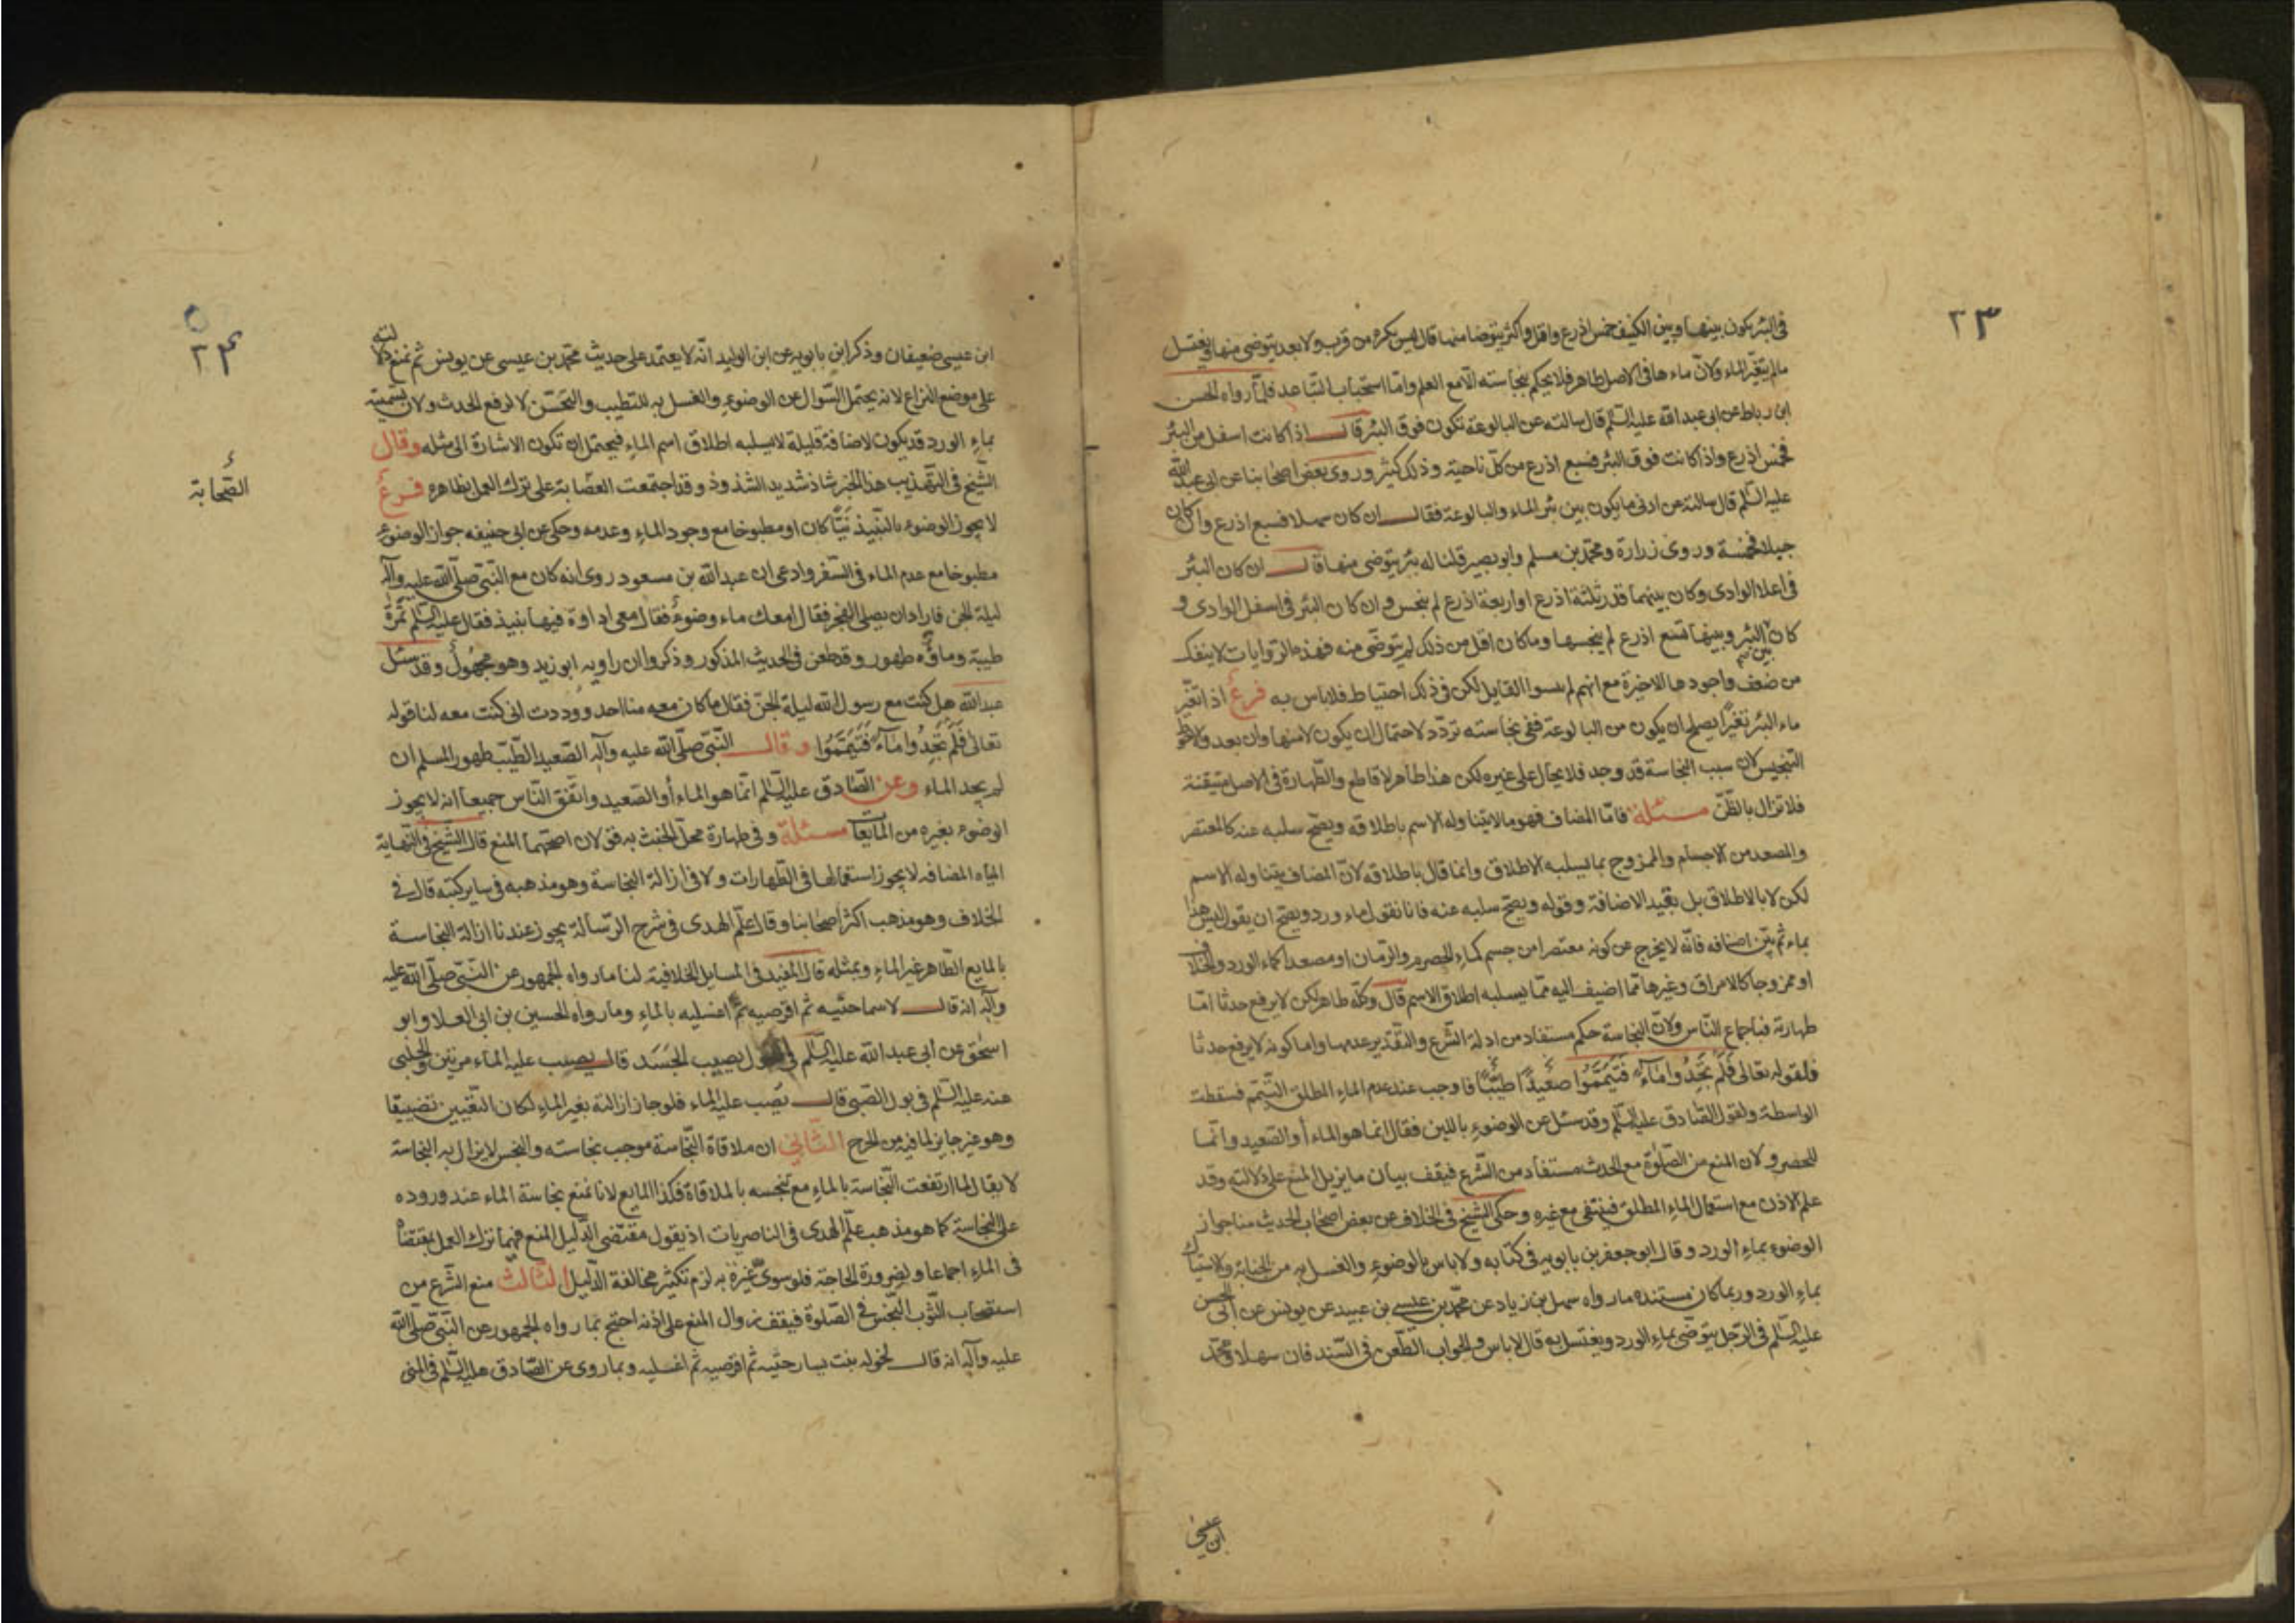 ٢٣
فى البئر يكون بينها وبين الكنيف خمس اذرع واقل واكثر يتوضا منها قال ليس يكره من قرب ولا بعد يتوضى منها ويغتسل
مالم يتغير الماء ولان ماءها فى الاصل طاهر فلا يحكم بنجاسته الا مع العلم واما استحباب التباعد فلما رواه الحسن
ابن رباط عن ابى عبد الله عليه السلم قال سالته عن البالوعة تكون فوق البئر قال اذا كانت اسفل من البئر
فخمس اذرع واذا كانت فوق البئر فسبع اذرع من كل ناحية وذلك كثير وروى بعض اصحابنا عن ابى عبد الله
عليه السلم قال سالته عن ادنى ما يكون بين بئر الماء والبالوعة فقال ان كان سهلا فسبع اذرع وان كان
جبلا فخمسة وروى زرارة ومحمد بن مسلم وابو بصير قلنا له بئر يتوضى منها قال ان كان البئر
فى اعلا الوادى وكان بينهما قدر ثلثة اذرع او اربعة اذرع لم ينجس وان كان البئر فى اسفل الوادى و
كان بين البئر وبينها تسع اذرع لم ينجسها وما كان اقل من ذلك لم يتوضى منه فهذه الروايات لا ينفك
من ضعف واجودها الاخيرة مع انهم لم يسموا القايل لكن فى ذلك احتياط فلا باس به فرع اذا تغير
ماء البئر تغيرا يصلح ان يكون من البالوعة ففى نجاسته تردد لاحتمال ان يكون لا منها وان بعد والاحوط
التنجيس لان سبب النجاسة قد وجد فلا يحال على غيره لكن هذا ظاهر لا قاطع والطهارة فى الاصل متيقنة
فلا تزال بالظن مسئلة فاما المضاف فهو مالا يتناوله الاسم باطلاقه ويصح سلبه عنه كالمعتصر
والمصعد من الاجسام والممزوج بما يسلبه الاطلاق وانما قال باطلاقه لان المضاف يتناوله الاسم
لكن لا بالاطلاق بل بقيد الاضافة وقوله ويصح سلبه عنه فانا نقول ماء ورد ويصح ان يقول ليس هذا
بماء ثم بين اصنافه فانه لا يخرج عن كونه معتصرا من جسم كماء الحصرم والرمان او مصعدا كماء الورد والخلاف
او ممزوجا كالامراق وغيرها مما اضيف اليه مما يسلبه اطلاق الاسم قال وكله طاهر لكن لا يرفع حدثا اما
طهارته فباجماع الناس ولان النجاسة حكم مستفاد من ادلة الشرع والتقدير عدمها واما كونه لا يرفع حدثا
فلقوله تعالى فلم تجدوا ماء فتيمموا صعيدا طيبا فاوجب عند عدم الماء المطلق التيمم فسقطت
الواسطة ولقول الصادق عليه السلم وقد سئل عن الوضوء باللبن فقال انما هو الماء أو الصعيد وانما
للحصر ولان المنع من الصلوة مع الحدث مستفاد من الشرع فيقف بيان ما يزيل المنع على دلالته وقد
علم الاذن مع استعمال الماء المطلق فينتفى مع غيره وحكى الشيخ فى الخلاف عن بعض اصحاب الحديث منا جواز
الوضوء بماء الورد وقال ابو جعفر بن بابويه فى كتابه ولا باس بالوضوء والغسل به من الجنابة والاستياك
بماء الورد وربما كان مستنده ما رواه سهل بن زياد عن محمد بن عيسى بن عبيد عن يونس عن ابى الحسن
عليه السلم فى الرجل يتوضى بماء الورد ويغتسل به قال لا باس والجواب الطعن فى السند فان سهلا ومحمد
ابن عيسى
٢٤
ابن عيسى ضعيفان وذكر ابن بابويه عن ابن الوليد انه لا يعتمد على حديث محمد بن عيسى عن يونس ثم نمنع دلالته
على موضع النزاع لانه يحتمل السوال عن الوضوء والغسل به للتطيب والتحسن لا لرفع الحدث ولان تسميته
بماء الورد قد يكون لاضافة قليلة لا يسلبه اطلاق اسم الماء فيحتمل ان تكون الاشارة الى مثله وقال
الشيخ فى التهذيب هذا الخبر شاذ شديد الشذوذ وقد اجتمعت العصابة على ترك العمل بظاهره فرع
الصحابة
لا يجوز الوضوء بالنبيذ نيئا كان او مطبوخا مع وجود الماء وعدمه وحكى عن ابى حنيفه جواز الوضوء
مطبوخا مع عدم الماء فى السفر وادعى ان عبد الله بن مسعود روى انه كان مع النبى صلى الله عليه وآله
ليلة الجن فاراد ان يصلى الفجر فقال امعك ماء وضوء فقال معى اداوة فيها نبيذ فقال عليه السلم تمرة
طيبة وماؤه طهور وقد طعن فى الحديث المذكور وذكروا ان راويه ابو زيد وهو مجهول وقد سئل
عبد الله هل كنت مع رسول الله ليلة الجن فقال ما كان معه منا احد ووددت انى كنت معه لنا قوله
تعالى فلم تجدوا ماء فتيمموا وقال النبى صلى الله عليه وآله الصعيد الطيب طهور المسلم ان
لم يجد الماء وعن الصادق عليه السلم انما هو الماء أو الصعيد واتفق الناس جميعا انه لا يجوز
الوضوء بغيره من المايعات مسئلة وفى طهارة محل الخبث به قولان اصحهما المنع قال الشيخ فى النهاية
المياه المضافه لا يجوز استعمالها فى الطهارات ولا فى ازالة النجاسة وهو مذهبه فى ساير كتبه قال فى
الخلاف وهو مذهب اكثر اصحابنا وقال علم الهدى فى شرح الرسالة يجوز عندنا ازالة النجاسة
بالمايع الطاهر غير الماء وبمثله قال المفيد فى المسايل الخلافية لنا ما رواه الجمهور عن النبى صلى الله عليه
وآله انه قال لاسما حتيه ثم اقرصيه ثم اغسليه بالماء وما رواه الحسين بن ابى العلا وابو
اسحق عن أبى عبد الله عليه السلم فى البول يصيب الجسد قال يصب عليه الماء مرتين والحلبى
عنه عليه السلم فى بول الصبى قال يصب عليه الماء فلو جاز ازالته بغير الماء لكان التعيين تضييقا
وهو غير جايز لما فيه من الحرج الثانى ان ملاقاة النجاسة موجب نجاسته والنجس لا يزال به النجاسة
لا يقال لما ارتفعت النجاسة بالماء مع تنجسه بالملاقاة فكذا المايع لانا نمنع نجاسة الماء عند وروده
على النجاسة كما هو مذهب علم الهدى فى الناصريات اذ يقول مقتضى الدليل المنع فيهما ترك العمل بمقتضاه
فى الماء اجماعا ولضرورة الحاجة فلو سوى غيره به لزم تكثير مخالفة الدليل الثالث منع الشرع من
استصحاب الثوب النجس فى الصلوة فيقف زوال المنع على اذنه احتج بما رواه الجمهور عن النبى صلى الله
عليه وآله انه قال لخوله بنت يسار حتيه ثم اقرصيه ثم اغسليه وبما روى عن الصادق عليه السلم فى المنى